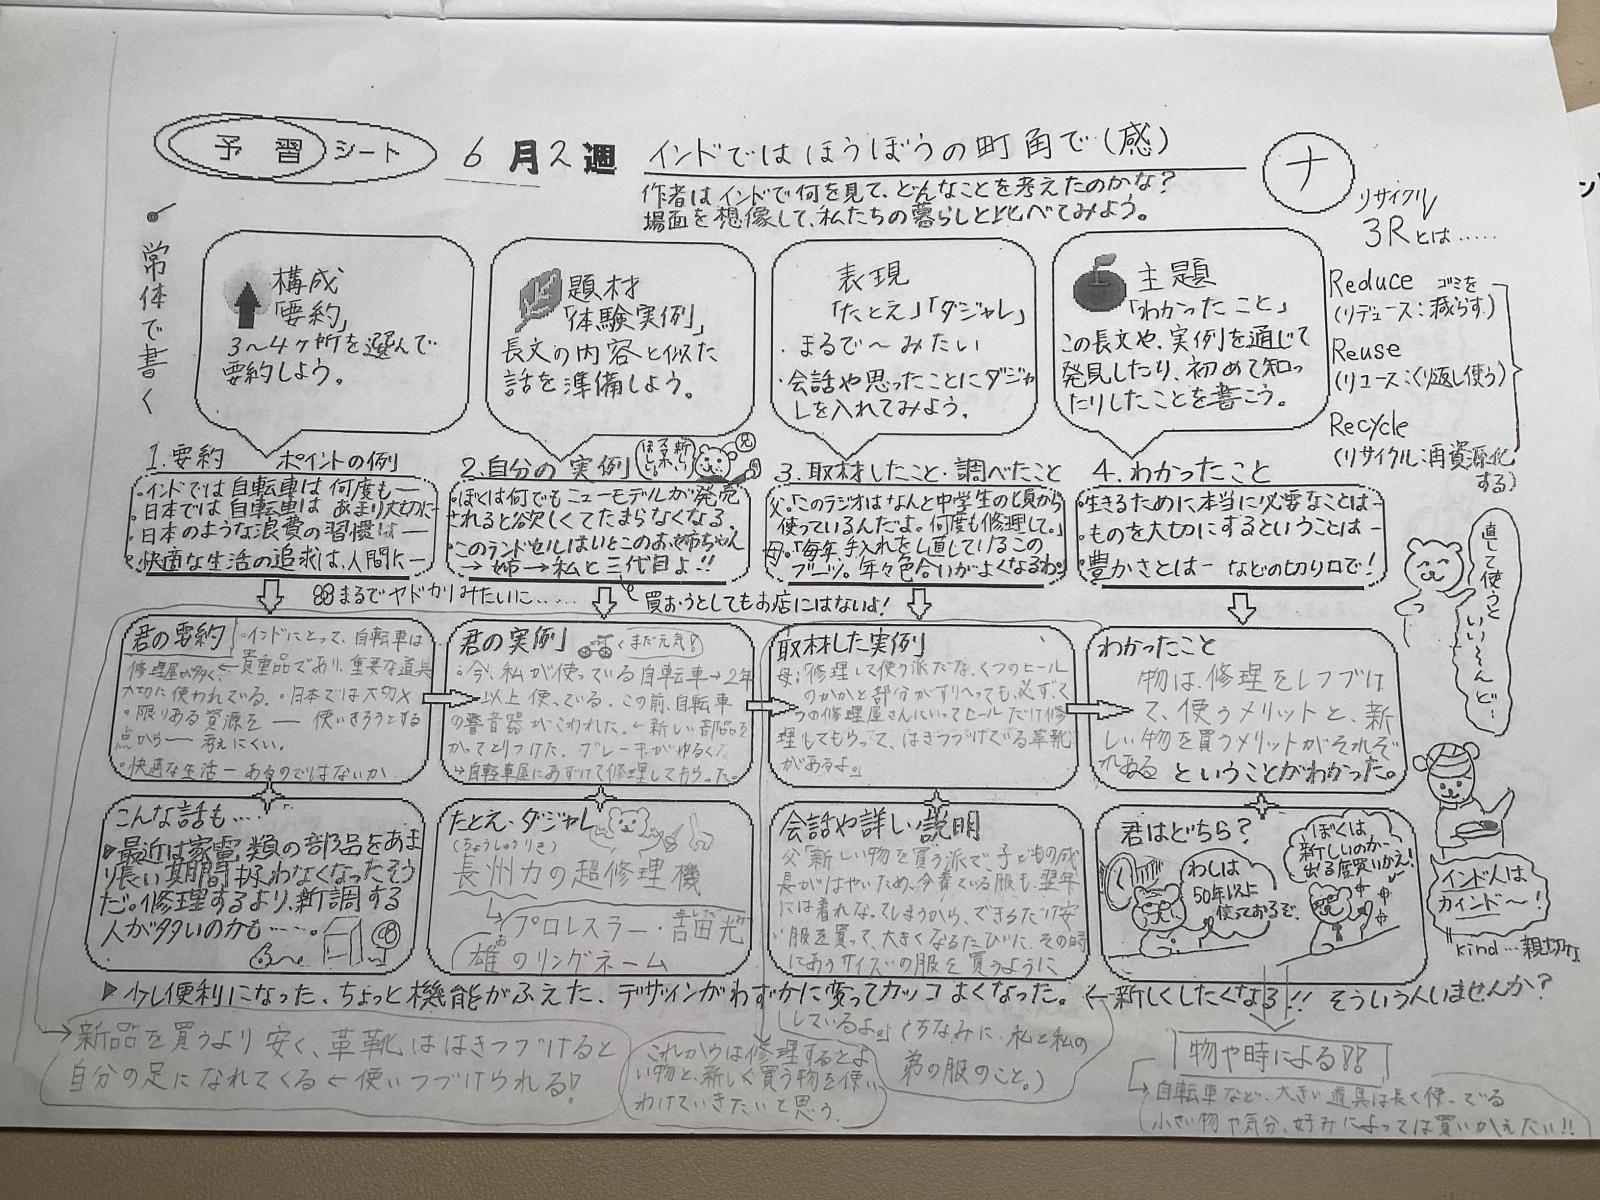 予習シート 6月2週 インドではほうぼうの町角で(感)
ナ
作者はインドで何を見て、どんなことを考えたのかな?
場面を想像して、私たちの暮らしと比べてみよう。
常体で書く
構成
「要約」
3〜4ヶ所を選んで
要約しよう。
題材
「体験実例」
長文の内容と似た
話を準備しよう。
表現
「たとえ」「ダジャレ」
・まるで〜みたい
・会話や思ったことにダジャ
レを入れてみよう。
主題
「わかったこと」
この長文や、実例を通じて
発見したり、初めて知っ
たりしたことを書こう。
リサイクル
3Rとは……
Reduce ゴミを
(リデュース:減らす)
Reuse
(リユース:くり返し使う)
Recycle
(リサイクル:再資源化
する)
1.要約 ポイントの例
・インドでは自転車は何度も—
・日本では自転車はあまり大切に—
・日本のような浪費の習慣は—
・快適な生活の追求は、人間に—
2.自分の実例
新しい
スマホ
ほしい。
兄
・ぼくは何でもニューモデルが発売
されると欲しくてたまらなくなる。
・このランドセルはいとこのお姉ちゃん
→姉→私と三代目よ!!
3.取材したこと・調べたこと
父.「このラジオはなんと中学生の頃から
使っているんだよ。何度も修理して。」
母.「毎年、手入れをし直しているこの
ブーツ。年々色合いがよくなるわ。
4.わかったこと
・生きるために本当に必要なことは—
・ものを大切にするということは—
・豊かさとは— などの切り口で!
まるでヤドカリみたいに……
買おうとしてもお店にはないよ!
直して使うと
いい〜んど〜
君の要約
・インドにとって、自転車は
修理屋が多く、←貴重品であり、重要な道具
大切に使われている。・日本では大切×
・限りある資源を—使いきろうとする
点から—考えにくい。
・快適な生活—あるのではないか
君の実例
くまだ元気!
・今、私が使っている自転車→2年
以上使っている。この前、自転車
の警音器がこわれた。←新しい部品を
かってとりつけた。ブレーキがゆるくな
→自転車屋にあずけて修理してもらった。
取材した実例
母;「修理して使う派だな。くつのヒール
のかかと部分がすりへっても、必ずく
つの修理屋さんにいってヒールだけ修
理してもらって、はきつづけている革靴
があるよ。」
わかったこと
物は、修理をしつづけ
て、使うメリットと、新
しい物を買うメリットがそれぞ
れある ということがわかった。
こんな話も…
▶最近は家電類の部品をあま
り長い期間扱わなくなったそう
だ。修理するより、新調する
人が多いのかも…。
たとえ・ダジャレ
(ちょうしゅうりき)
長州力の超修理機
→プロレスラー・吉田光
雄のリングネーム
会話や詳しい説明
父「新しい物を買う派で、子どもの成
長がはやいため、今着ている服も、翌年
には着れなってしまうから、できるだけ安
い服を買って、大きくなるたびに、その時
にあうサイズの服を買うように
しているよ。」(ちなみに、私と私の
弟の服のこと。)
君はどちら?
わしは
50年以上
使っておるぞ。
ぼくは
新しいのが
出る度買いかえ!
インド人は
カインド〜!
kind…親切な
▶少し便利になった、ちょっと機能がふえた、デザインがわずかに変ってカッコよくなった。←新しくしたくなる!! そういう人いませんか?
→新品を買うより安く、革靴ははきつづけると
自分の足になれてくる←使いつづけられる!
これからは修理するとよ
い物と、新しく買う物を使い
わけていきたいと思う。
物や時による!?
→自転車など、大きい道具は長く使っている
小さい物や気分、好みによっては買いかえたい!!